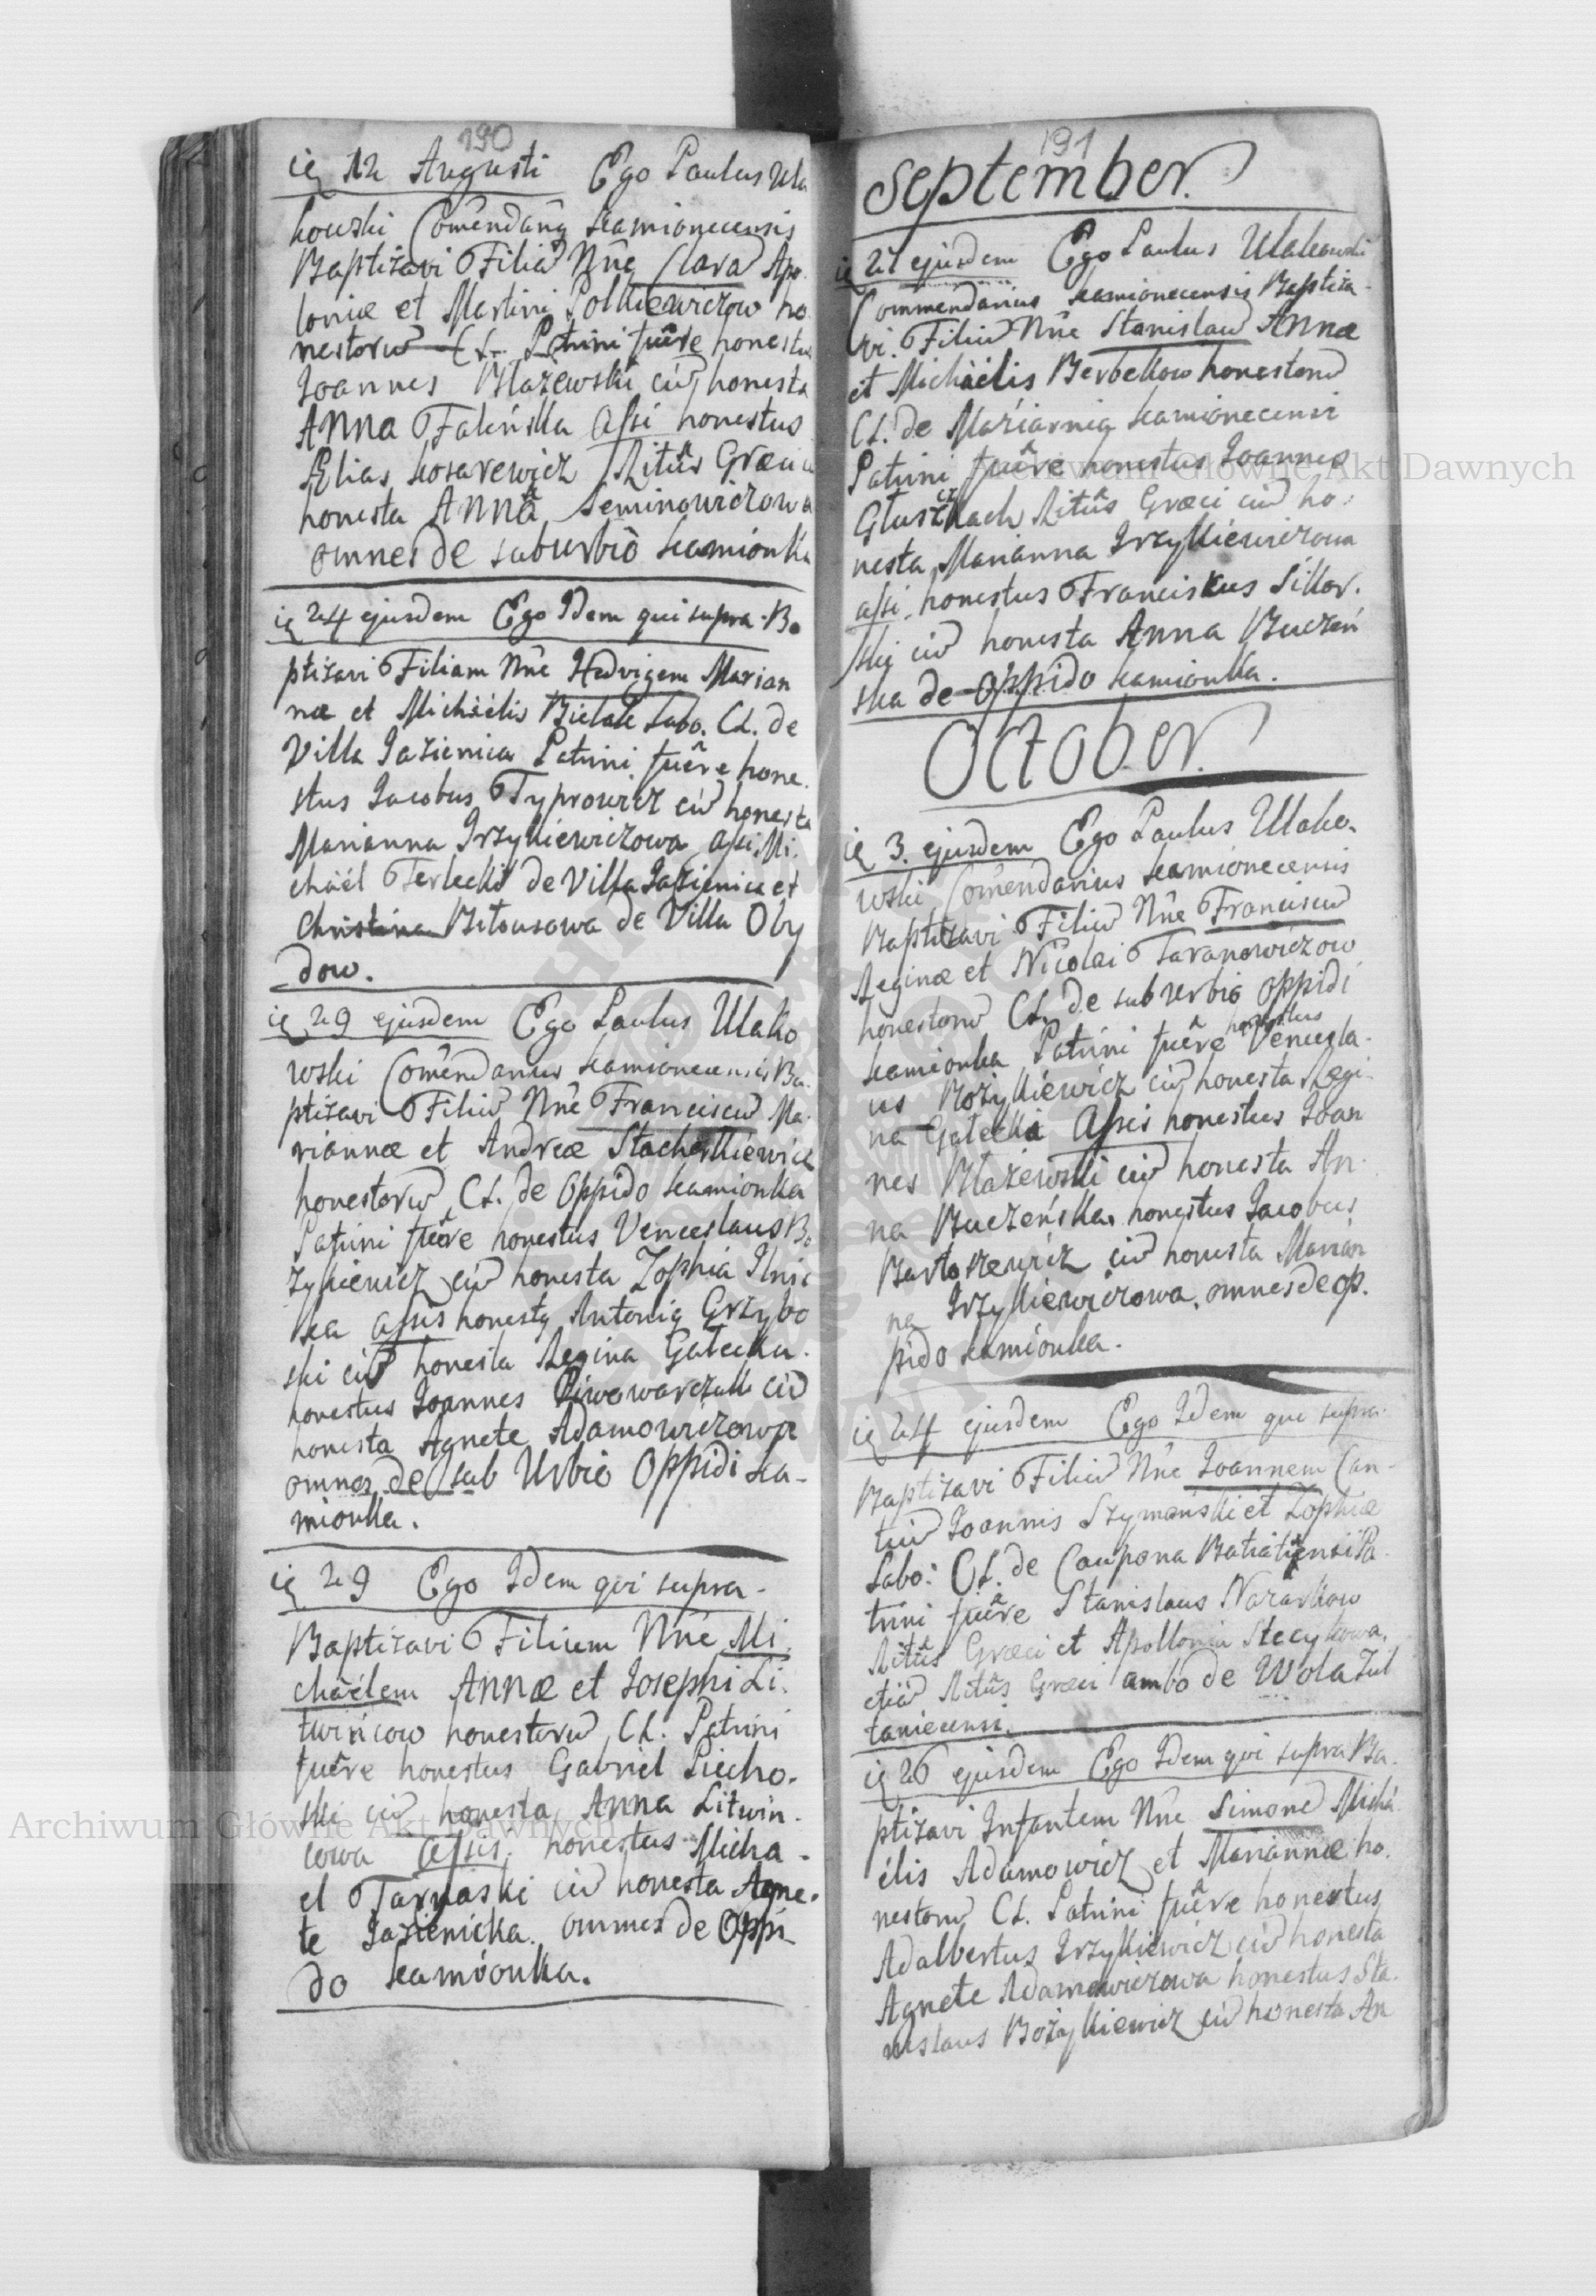 190
ie 12 Augusti Ego Paulus Ula
kowski Comendang Kamionecensis
Baptizavi Filia Nne Clara Apo
loniæ et Martini Polkiewiczow ho
nestoru C.L. Patrini fuêre honestus
Joannes Błażewski cu honesta
Anna Faleńska Assi honestus
Elias Kosarewicz Ritûs Græci
honesta Anna Seminowiczowa
omnes de suburbio Kamionka
ie 24 ejusdem Ego Idem qui supra Ba
ptizavi Filiam Nne Hedvigem Marian
næ et Michäelis Bielak Labo. C.L. de
Villa Jazienica Patrini fuêre hone
stus Jacobus Typrowicz cu honesta
Marianna Irzykiewiczowa Assi. Mi
chäel Terlecki de Villa Jazienica et
Christina Bilousowa de Villa Oby
dow.
ie 29 ejusdem Ego Paulus Ulako
wski Comendarius Kamionecensis Ba
ptizavi Filiu Nne Franciscu Ma
riannæ et Andreæ Stachurkiewicz
honestoru C.L. de Oppido Kamionka
Patrini fuêre honestus Venceslaus Bo
zykiewicz cu honesta Zophia Ilnic
ka assis honesty Antonig Grzybo
ski cu honesta Regina Gałecka.
honestus Joannes Piwowarczuk cu
honesta Agnete Adamowiczowa
omnes de sub Urbio Oppidi Ka-
mionka.
ie 29 Ego Idem qvi supra.
Baptizavi Filium Nne Mi
chäelem Annæ et Josephi Li
twincow honestoru C.L. Patrini
fuêre honestus Gabriel Piecho.
ski cu honesta Anna Litwin.
cowa Assis. honestus Micha-
el Tarnaski cu honesta Agne.
te Jazienicka. omnes de Oppi
do Kamionka.
191
September.
ie 27 ejusdem Ego Paulus Ulakowski
Commendarius Kamionecensis Baptiza-
vi. Filiu Nne Stanislau Annæ
et Michäelis Berbekow honestoru
C.L. de Maziarnia Kamionecensi
Patrini fuêre honestus Joannes
Głuszkach Ritûs Græci cu ho-
nesta Marianna Irzykiewiczowa
assi. honestus Franciskus Sikor.
ski cu honesta Anna Buczeń
ska de Oppido Kamionka.
October.
ie 3. ejusdem Ego Paulus Ulako.
wski Comendarius Kamionecensis
Baptizavi Filiu Nne Franciscu
Reginæ et Nicolai Taranowiczow
honestoru C.L. de suburbio Oppidi
Kamionka Patrini fuêre honestus Vencesla-
us Bożykiewicz cu honesta Regi-
na Gałecka Assis honestus Joan
nes Błażewski cu honesta An-
na Buczeńska. honestus Jacobus
Bartoszewicz cu honesta Marian
na Irzykiewiczowa. omnes de op.
pido Kamionka.
ie 24 ejusdem Ego Idem qui supra.
Baptizavi Filiu Nne Joannem Can-
tiu Joannis Szymański et Zophiæ
Labo: C.L. de Caupona Batiatÿensi Pa
trini fuêre Stanislaus Nazarkow
Ritûs Græci et Apollonia Stecykowa.
etia Ritûs Græci ambo de Wola Zuł
taniecensi.
ie 26 ejusdem Ego Idem qvi supra Ba.
ptizavi Infantem Nne Simone Michä
elis Adamowicz et Mariannæ ho.
nestoru C.L. Patrini fuêre honestus
Adalbertus Irzykiewicz cu honesta
Agnete Adamowiczowa honestus Sta.
nislaus Bożykiewicz cu honesta An
Archiwum Główne Akt Dawnych
Archiwum Główne Akt Dawnych